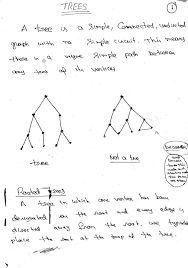 TREES
1
A tree is a simple, connected, undirected
graph with no simple circuit. This means
there is a unique simple path between
any two of its vertices
tree
Not a tree
Rooted Trees
A tree in which one vertex has been
designated as the root and every edge is
directed away from the root. we typically
place the root at the top of the tree.